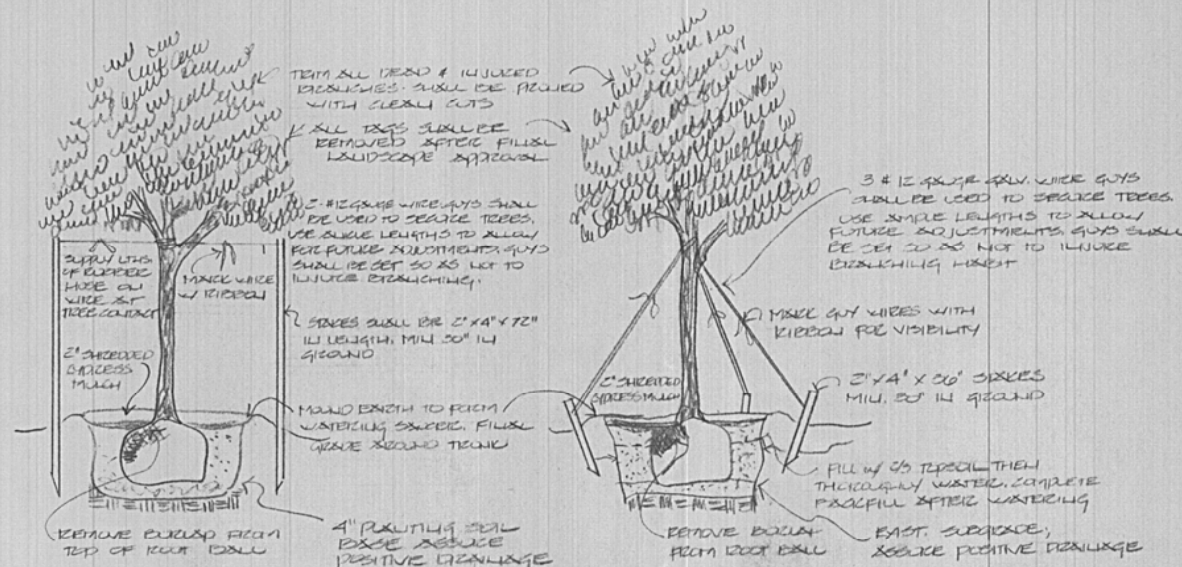 TRIM ALL DEAD & INJURED
BRANCHES. SHALL BE PRUNED
WITH CLEAN CUTS
ALL TAGS SHALL BE
REMOVED AFTER FINAL
LANDSCAPE APPROVAL
2-#12 GAUGE WIRE GUYS SHALL
BE USED TO SECURE TREES.
USE AMPLE LENGTHS TO ALLOW
FOR FUTURE ADJUSTMENTS. GUYS
SHALL BE SET SO AS NOT TO
INJURE BRANCHING.
SUPPLY LTHS
OF RUBBER
HOSE ON
WIRE AT
TREE CONTACT
MARK WIRE
W/ RIBBON
STAKES SHALL BE 2"x4"x72"
IN LENGTH, MIN 30" IN
GROUND
2" SHREDDED
CYPRESS
MULCH
MOUND EARTH TO FORM
WATERING SAUCER. FINAL
GRADE AROUND TRUNK
REMOVE BURLAP FROM
TOP OF ROOT BALL
4" PLANTING SOIL
BASE ASSURE
POSITIVE DRAINAGE
3 # 12 GAUGE GALV. WIRE GUYS
SHALL BE USED TO SECURE TREES.
USE AMPLE LENGTHS TO ALLOW
FUTURE ADJUSTMENTS. GUYS SHALL
BE SET SO AS NOT TO INJURE
BRANCHING HABIT
MARK GUY WIRES WITH
RIBBON FOR VISIBILITY
2" SHREDDED
CYPRESS MULCH
2"x4"x36" STAKES
MIN. 30" IN GROUND
FILL W/ 2/3 TOPSOIL THEN
THOROUGHLY WATER. COMPLETE
BACKFILL AFTER WATERING
REMOVE BURLAP
FROM ROOT BALL
EXIST. SUBGRADE,
ASSURE POSITIVE DRAINAGE